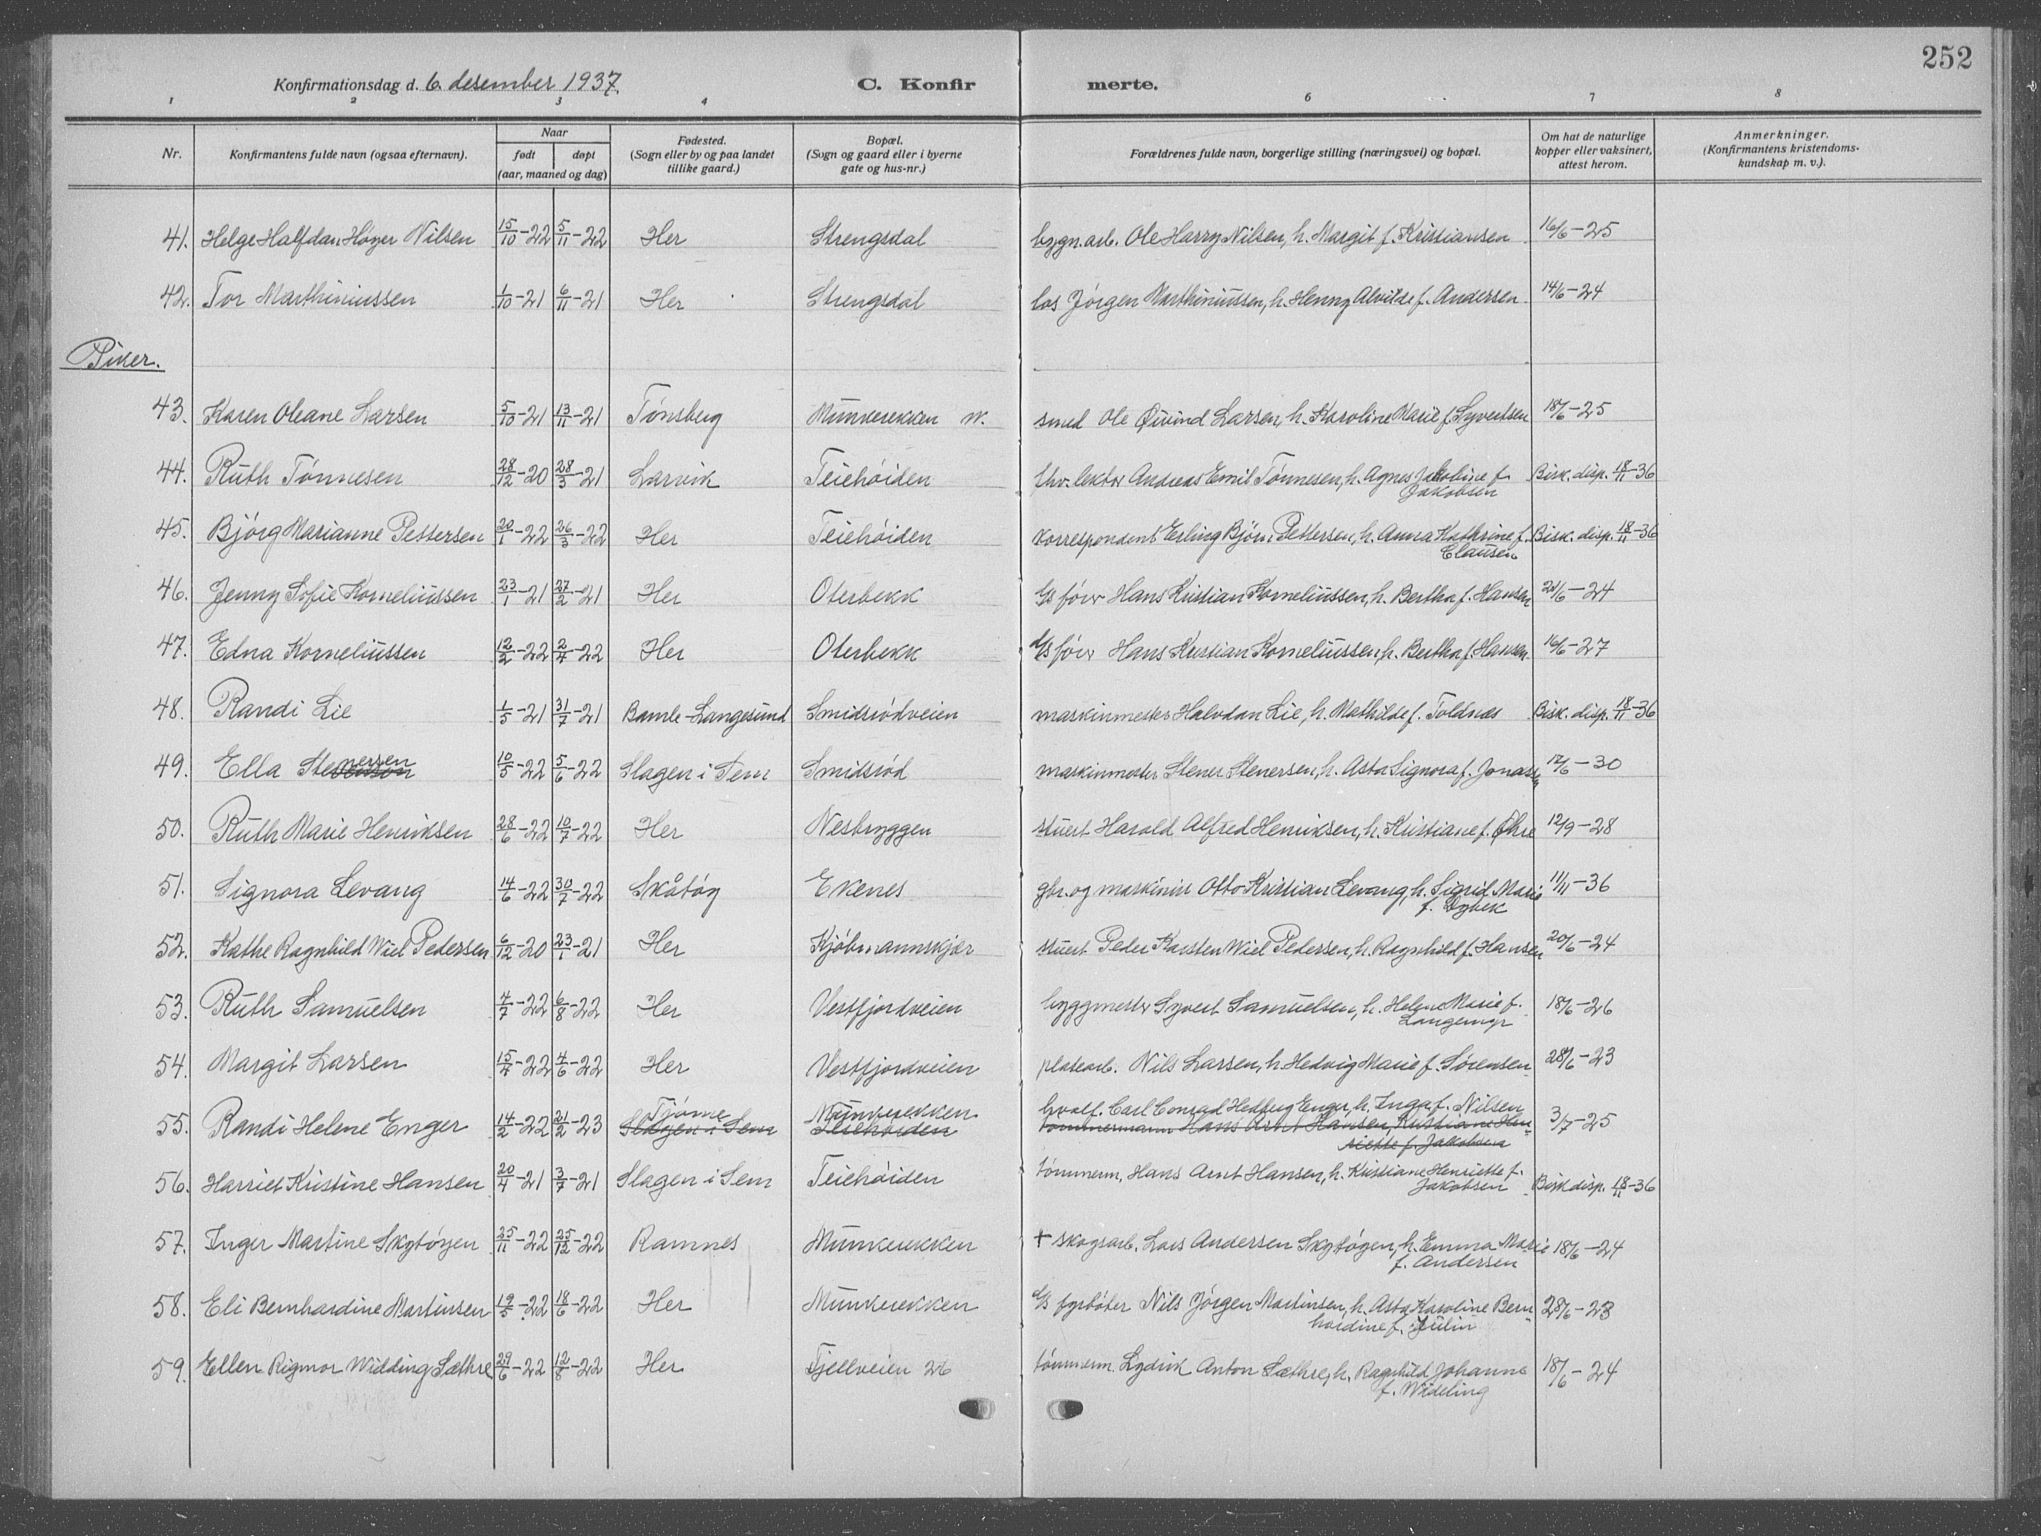 252
Konfirmationsdag d. 6. desember 1937. C. Konfir merte.
1 2 3 4 6 7 8
Nr. Konfirmantens fulde navn (ogsaa efternavn). Naar født døpt (aar, maaned og dag) Fødested. (Sogn eller by og paa landet tillike gaard.) Bopæl. (Sogn og gaard eller i byerne gate og hus-nr.) Forældrenes fulde navn, borgerlige stilling (næringsvei) og bopæl. Om hat de naturlige kopper eller vaksinert, attest herom. Anmerkninger. (Konfirmantens kristendoms- kundskap m. v.).
41. Helge Halfdan Høyer Nilsen 15/10-22 5/11-22 Her Strengsdal bygn.arb. Ole Harry Nilsen, h. Margit f. Kristiansen 16/6-25
42. Tor Marthiniussen 1/10-21 6/11-21 Her Strengsdal los Jørgen Marthiniussen, h. Henny Alvilde f. Andersen 14/6-24
Piker.
43. Karen Oleane Larsen 5/10-21 13/11-21 Tønsberg Munkerekken smed Ole Øivind Larsen, h. Karoline Marie f. Syvertsen 18/6-25
44. Ruth Tønnesen 28/12-20 28/3-21 Larvik Teiehøiden lektor Andreas Emil Tønnesen, h. Agnes f. Jakobsen Bisk. disp. 18/11-36
45. Bjørg Marianne Pettersen 20/1-22 26/3-22 Her Teiehøiden korrespondent Erling Bjørn Pettersen, h. Anna Kathrine f. Clausen Bisk. disp. 18/11-36
46. Jenny Sofie Korneliussen 23/1-21 27/2-21 Her Oterbekk Hans Kristian Korneliussen, h. Bertha f. Hansen -24
47. Edna Korneliussen 12/2-22 2/4-22 Her Oterbekk Hans Kristian Korneliussen, h. Bertha f. Hansen 16/6-27
48. Randi Lie 1/5-21 31/7-21 Bamle-Langesund Smidsrødveien maskinmester Halvdan Lie, h. Mathilde f. Toldnæs Bisk. disp. 18/11-36
49. Ella Stenersen 10/5-22 5/6-22 Slagen i Sem Smidsrød maskinmester Stener Stenersen, h. Asta Signora f. Jonassen 12/6-30
50. Ruth Marie Henriksen 28/6-22 10/7-22 Her Nesbryggen stuert Harald Alfred Henriksen, h. Kristiane f. Øhre 12/9-28
51. Signora Levang 14/6-22 30/7-22 Skåtøy Ekenes gbr. og maskinist Otto Kristian Levang, h. Sigrid Marie f. Dybek 11/11-36
52. Kathe Ragnhild Wiel Pedersen 6/12-20 23/1-21 Her Kjøbmannskjær stuert Peder Karsten Wiel Pedersen, h. Ragnhild f. Hansen 20/6-24
53. Ruth Samuelsen 4/7-22 6/8-22 Her Vestfjordveien byggmester Syvert Samuelsen, h. Helene Marie f. Langemyr 18/6-26
54. Margit Larsen 15/4-22 4/6-22 Her Vestfjordveien platearb. Nils Larsen, h. Hedvig Marie f. Sørensen 28/6-23
55. Randi Helene Enger 14/2-22 21/2-23 Tjøme Slagen i Sem Munkerekken Teiehøiden hvalf. Carl Conrad Hedberg Enger, h. Inga f. Nilsen tømmermann Hans Arnt Hansen, Kristiane Henriette f. Jakobsen 3/7-25
56. Harriet Kristine Hansen 20/4-21 3/7-21 Slagen i Sem Teiehøiden tømmerm. Hans Arnt Hansen, h. Kristiane Henriette f. Jakobsen Bisk disp. 18/11-36
57. Inger Martine Skytøyen 25/11-22 25/12-22 Ramnes Munkerekken + skogsarb. Lars Andersen Skytøyen, h. Emma Marie f. Andersen 18/6-24
58. Eli Bernhardine Martinsen 19/5-22 18/6-22 Her Munkerekken fyrbøter Nils Jørgen Martinsen, h. Asta Karoline Bernhardine f. Julin 28/6-23
59. Ellen Rigmor Widding Sæthre 29/6-22 12/8-22 Her Fjellveien 26 tømmerm. Lydrik Anton Sæthre, h. Ragnhild Johanne f. Wideling 18/6-24